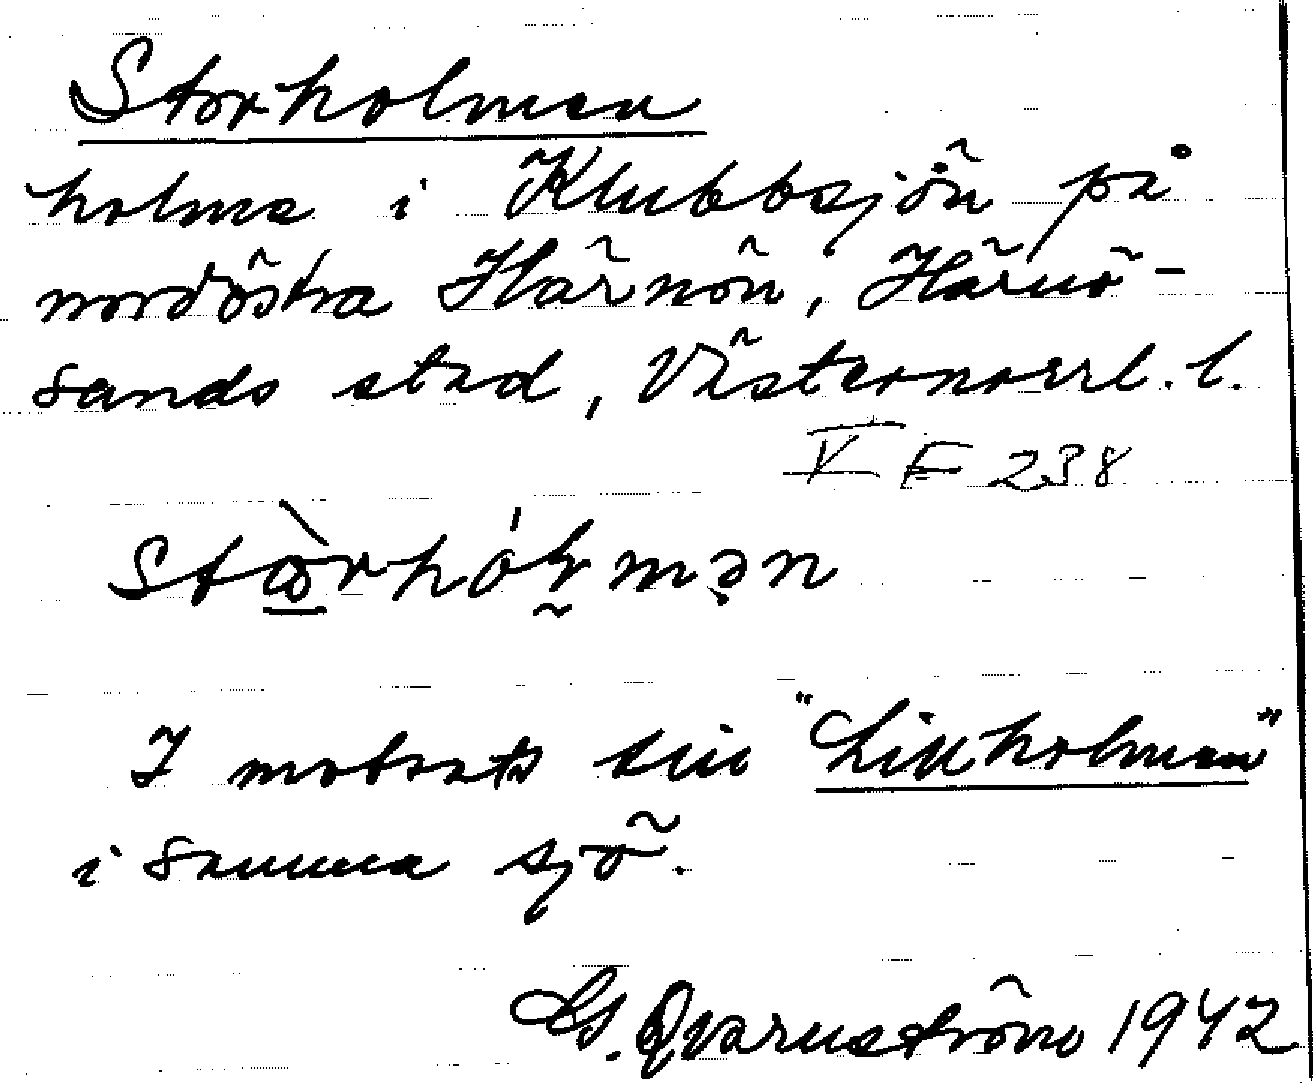 Storholmen
holme i Klubbsjön på
nordöstra Härnön, Härnö-
sands stad, Västernorrl. l.
V F 238
Stòrhólmən
I motsats till "Lillholmen"
i samma sjö.
G. Qvarnström 1942